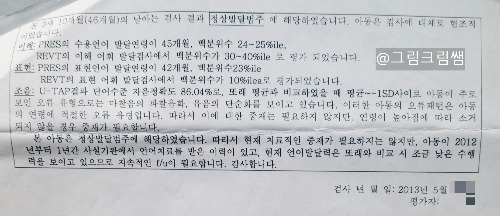 본 3세 10개월(46개월)의 남아는 검사 결과 정상발달범주 에 해당하였습니다. 아동은 검사에 대체로 협조적
이었습니다.
이해: PRES의 수용언어 발달연령이 45개월, 백분위수 24-25%ile,
REVT의 이해 어휘 발달검사에서 백분위수가 30-40%ile 로 평가 되었습니다.
표현: PRES의 표현언어 발달연령이 42개월, 백분위수23%ile
REVT의 표현 어휘 발달검사에서 백분위수가 10%ilea로 평가되었습니다.
조음: U-TAP결과 단어수준 자음정확도 86.04%로, 또래 평균과 비교하였을 때 평균--1SD사이로 아동이 주로
보인 오류 유형으로는 마찰음의 파찰음화, 유음의 단순화를 보이고 있습니다. 이러한 아동의 오류패턴은 아동
의 연령에 적절한 오류 유형입니다. 따라서 이에 대한 중재는 필요하지 않지만, 연령이 높아짐에 따라 소거
되지 않을 경우 중재가 필요합니다.
본 아동은 정상발달범주에 해당하였습니다. 따라서 현재 치료적인 중재가 필요하지는 않지만, 아동이 2012
년부터 1년간 사설기관에서 언어치료를 받은 이력이 있고, 현재 언어발달력은 또래와 비교 시 조금 낮은 수행
력을 보이고 있으므로 지속적인 f/u이 필요합니다. 감사합니다.
검사 년 월 일: 2013년 5월
평가자:
@그림크림쌤